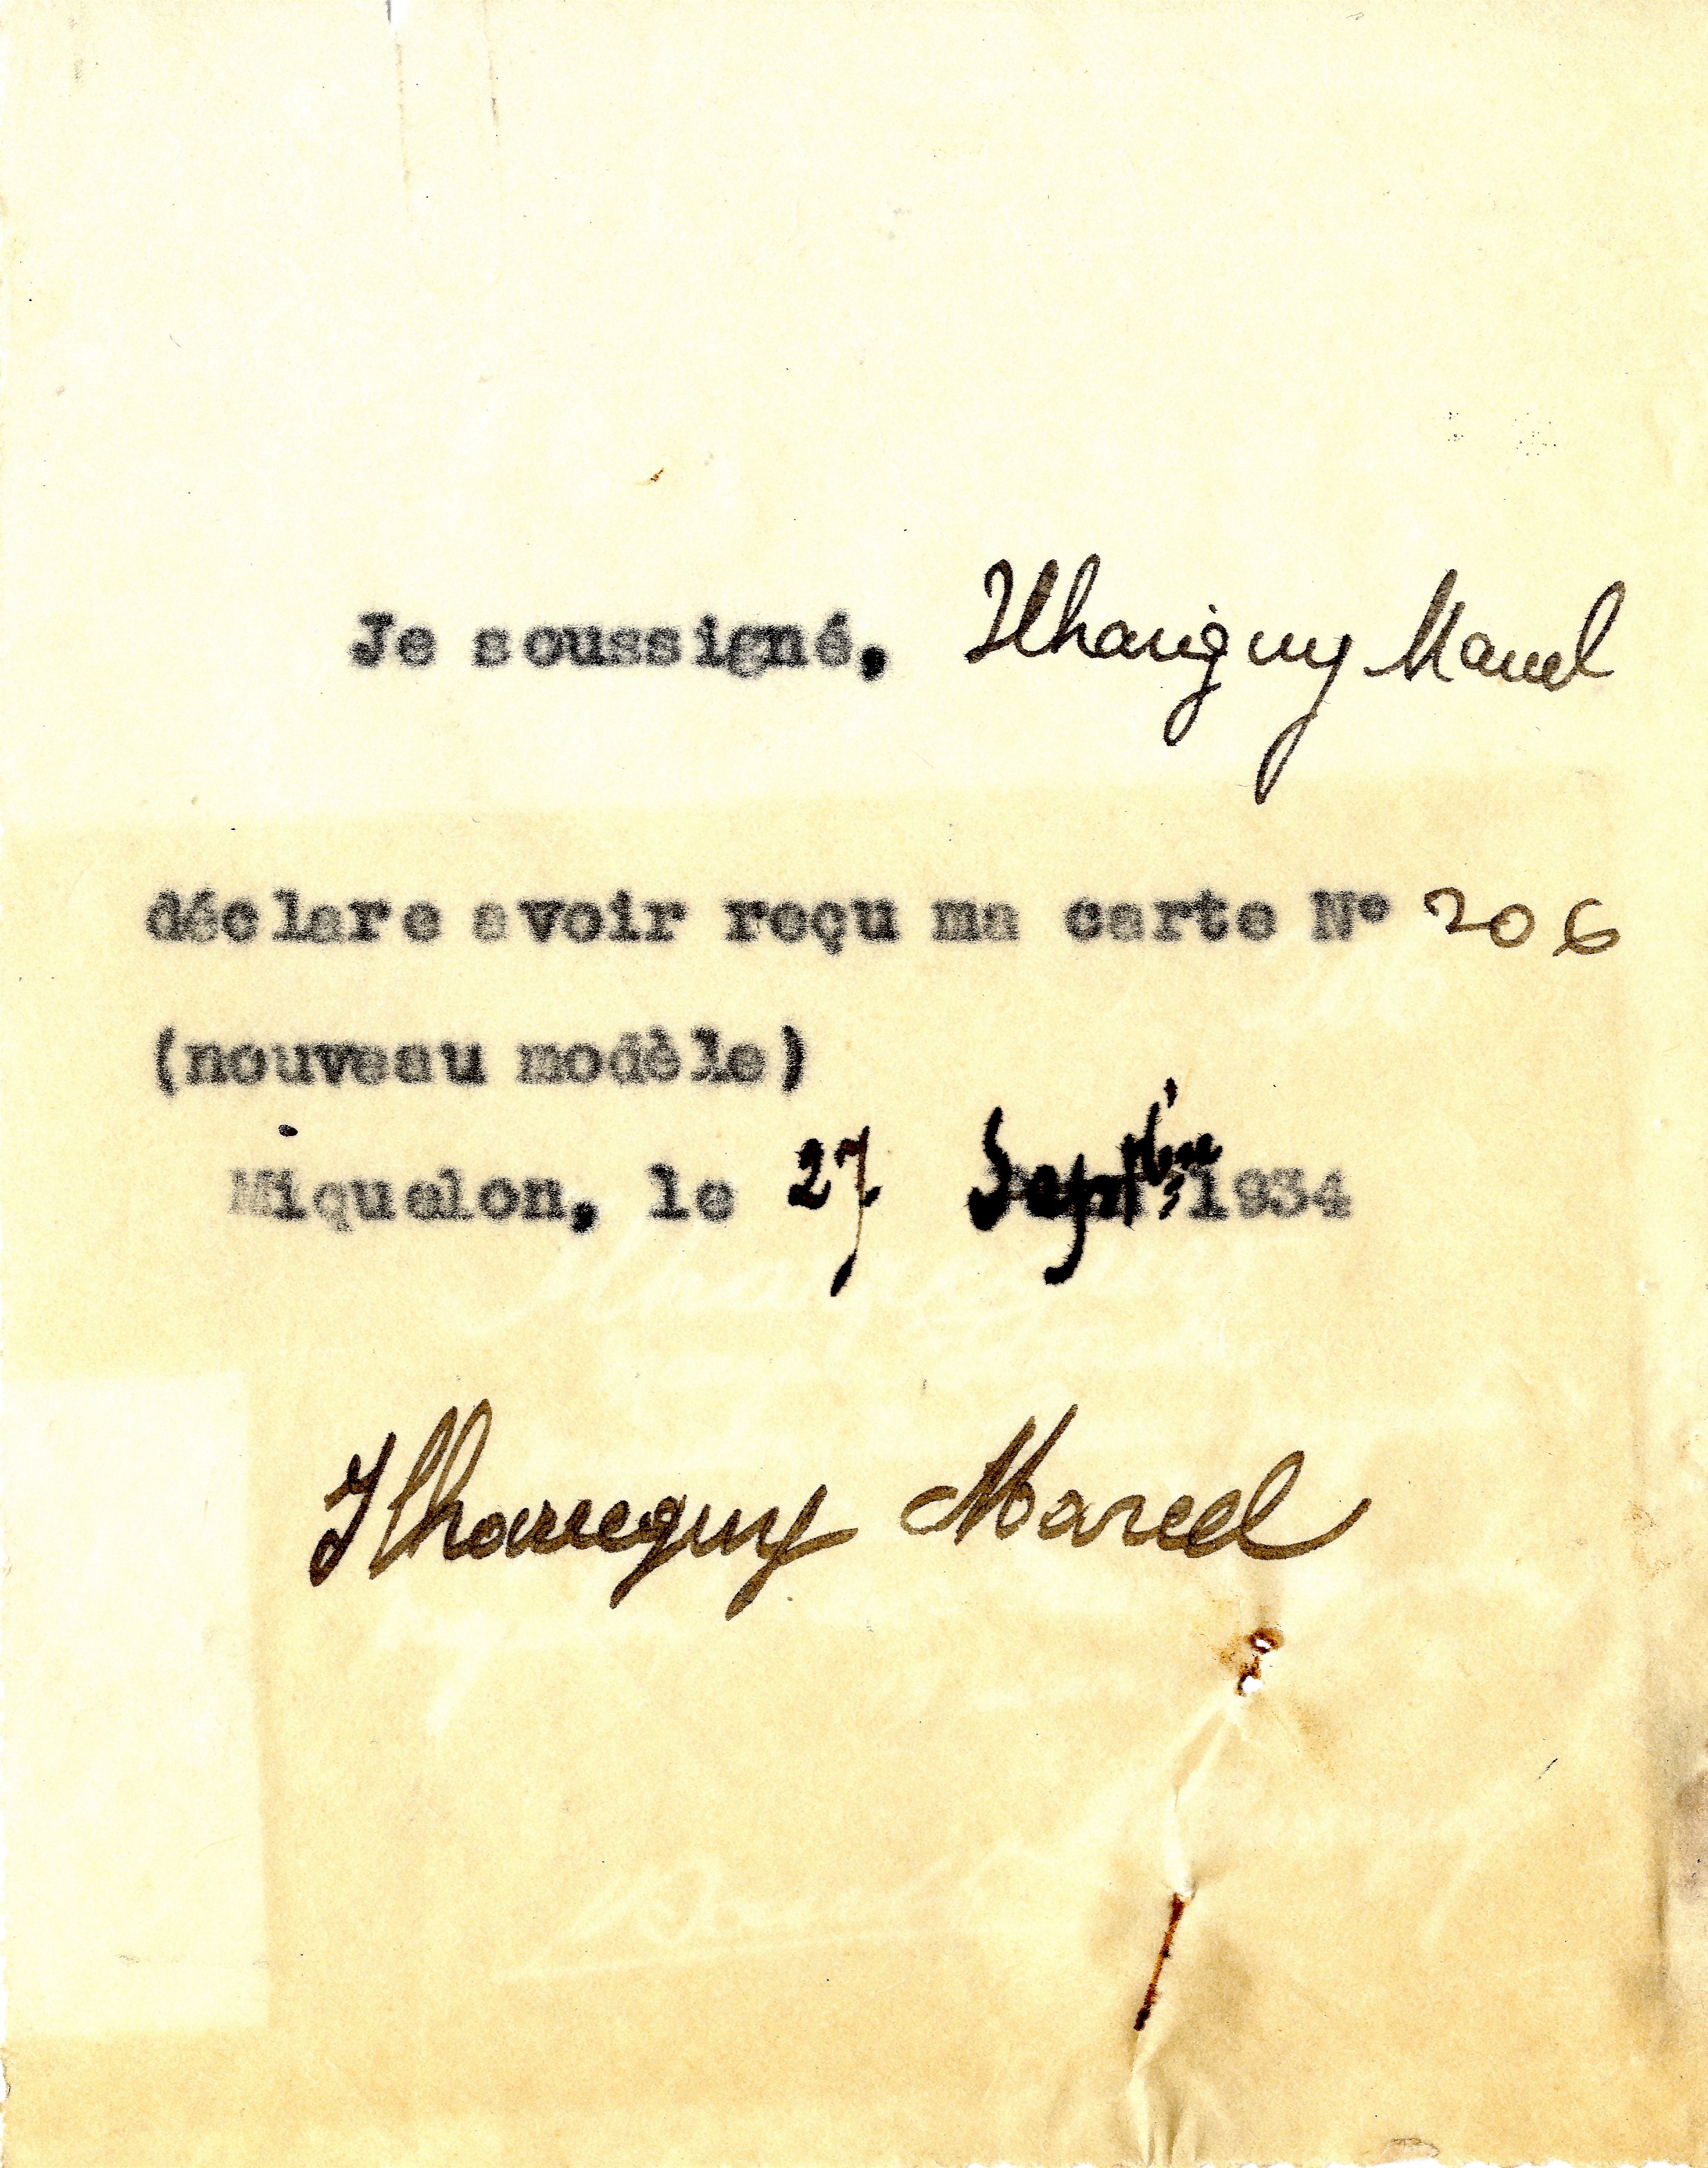 Je soussigné, Ilhariguy Marcel
déclare avoir reçu ma carte N° 206
(nouveau modèle)
Miquelon, le 27 Septbre 1934
Ilharreguy Marcel